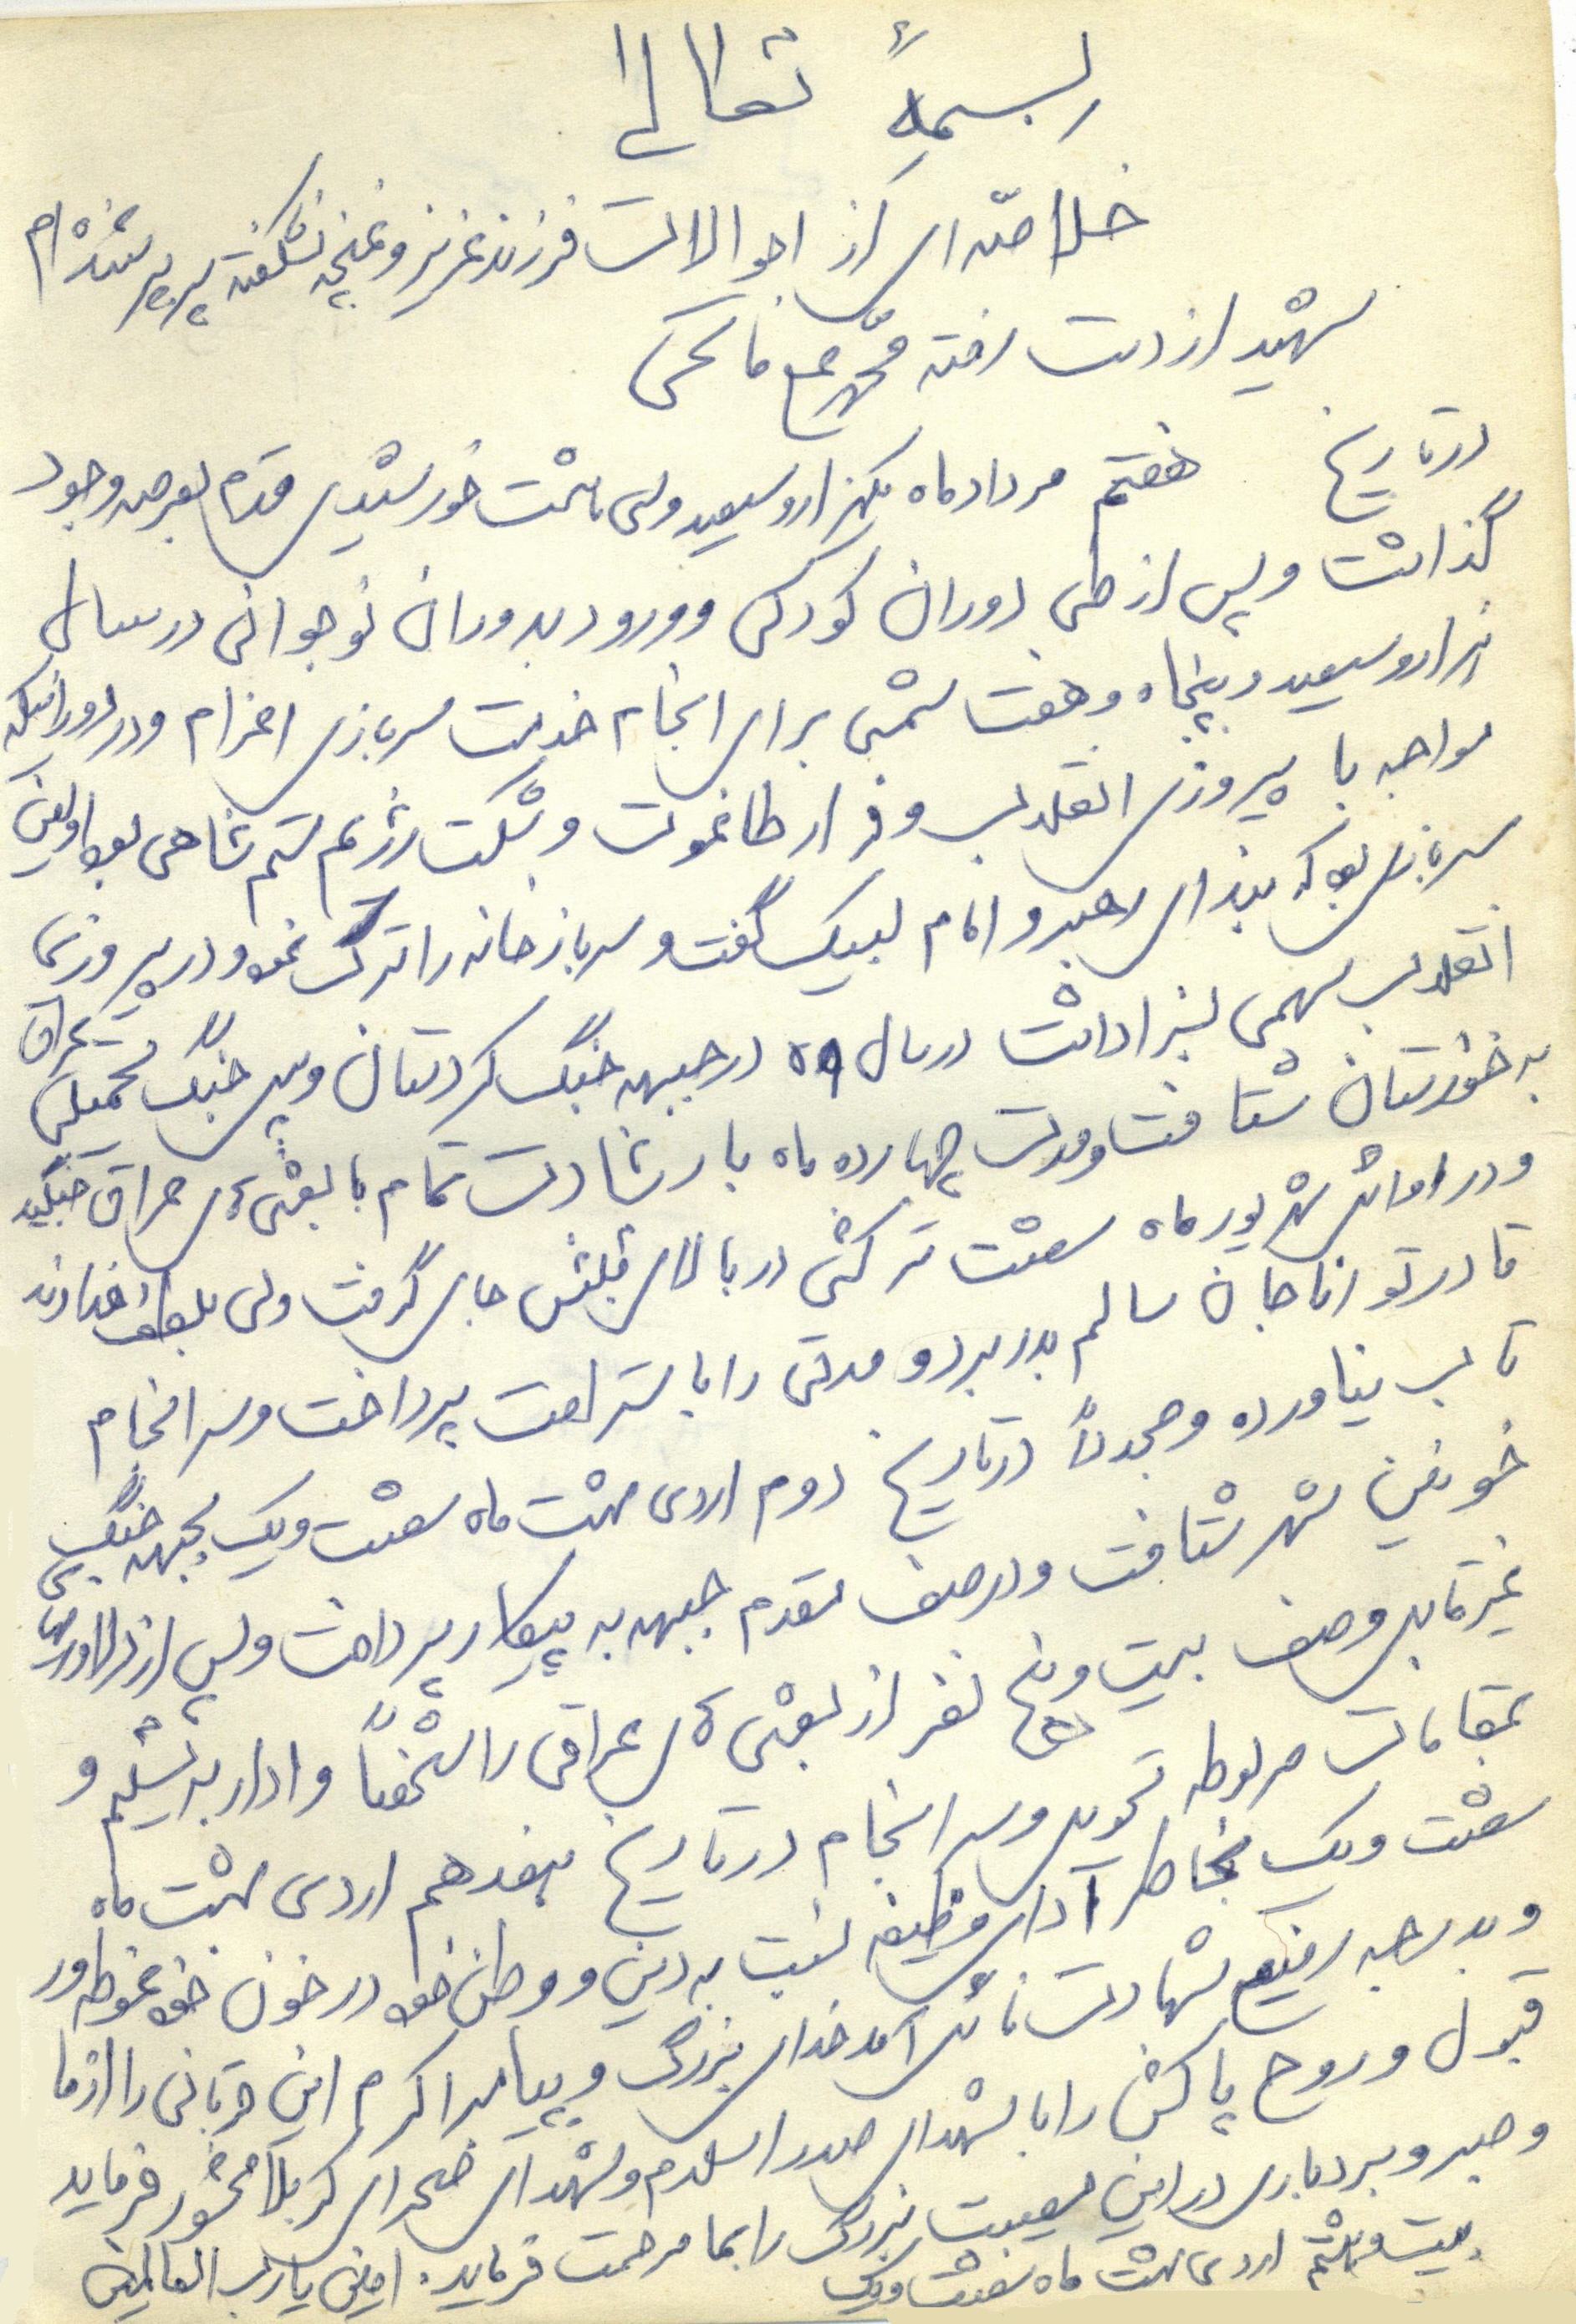 بسمهٔ تعالی
خلاصه‌ای از احوالات فرزند عزیز و غنچه نشکفته پرپر شده‌ام
شهید از دست رفته محمد مالکی
در تاریخ هفتم مردادماه یکهزار و سیصد و سی و هشت خورشیدی قدم بعرصه وجود
گذاشت و پس از طی دوران کودکی و ورود بدوران نوجوانی در سال
هزار و سیصد و پنجاه و هفت شمسی برای انجام خدمت سربازی اعزام و در دورانیکه
مواجه با پیروزی انقلاب و فرار طاغوت و شکست رژیم ستم شاهی بود اولین
سربازی بود که بندای رهبر و امام لبیک گفت و سربازخانه را ترک نمود و در پیروزی
انقلاب سهمی بسزا داشت در سال ۵۹ در جبهه جنگ کردستان و سپس جنگ تحمیلی عراق
به خوزستان شتافت و مدت چهارده ماه با رشادت تمام با بعثی‌های عراق جنگید
و در اوائل شهریور ماه شصت ترکش در بالای قلبش جای گرفت ولی بلطف خداوند
قادر توانا جان سالم بدر برد و مدتی را با استراحت پرداخت و سرانجام
تاب نیاورده و مجدداً در تاریخ دوم اردی بهشت ماه شصت و یک بجبهه جنگ
خونین شهر شتافت و در صف مقدم جبهه به پیکار پرداخت و پس از دلاوریهای
غیر قابل وصف بیست و پنج نفر از بعثی‌های عراقی را شخصاً وادار به تسلیم و
بمقامات مربوطه تحویل و سرانجام در تاریخ هفدهم اردی بهشت ماه
شصت و یک بخاطر آدای وظیفه نسبت به دین و وطن خود در خون خود غوطه‌ور
و بدرجه رفیع شهادت نائل آمد خدای بزرگ و پیامبر اکرم این قربانی را از ما
قبول و روح پاکش را با شهدای صدر اسلام و شهدای صحرای کربلا محشور فرماید
و صبر و بردباری در این مصیبت بزرگ را بما مرحمت فرماید. امین یا رب العالمین
بیست و هشتم اردی بهشت ماه شصت و یک